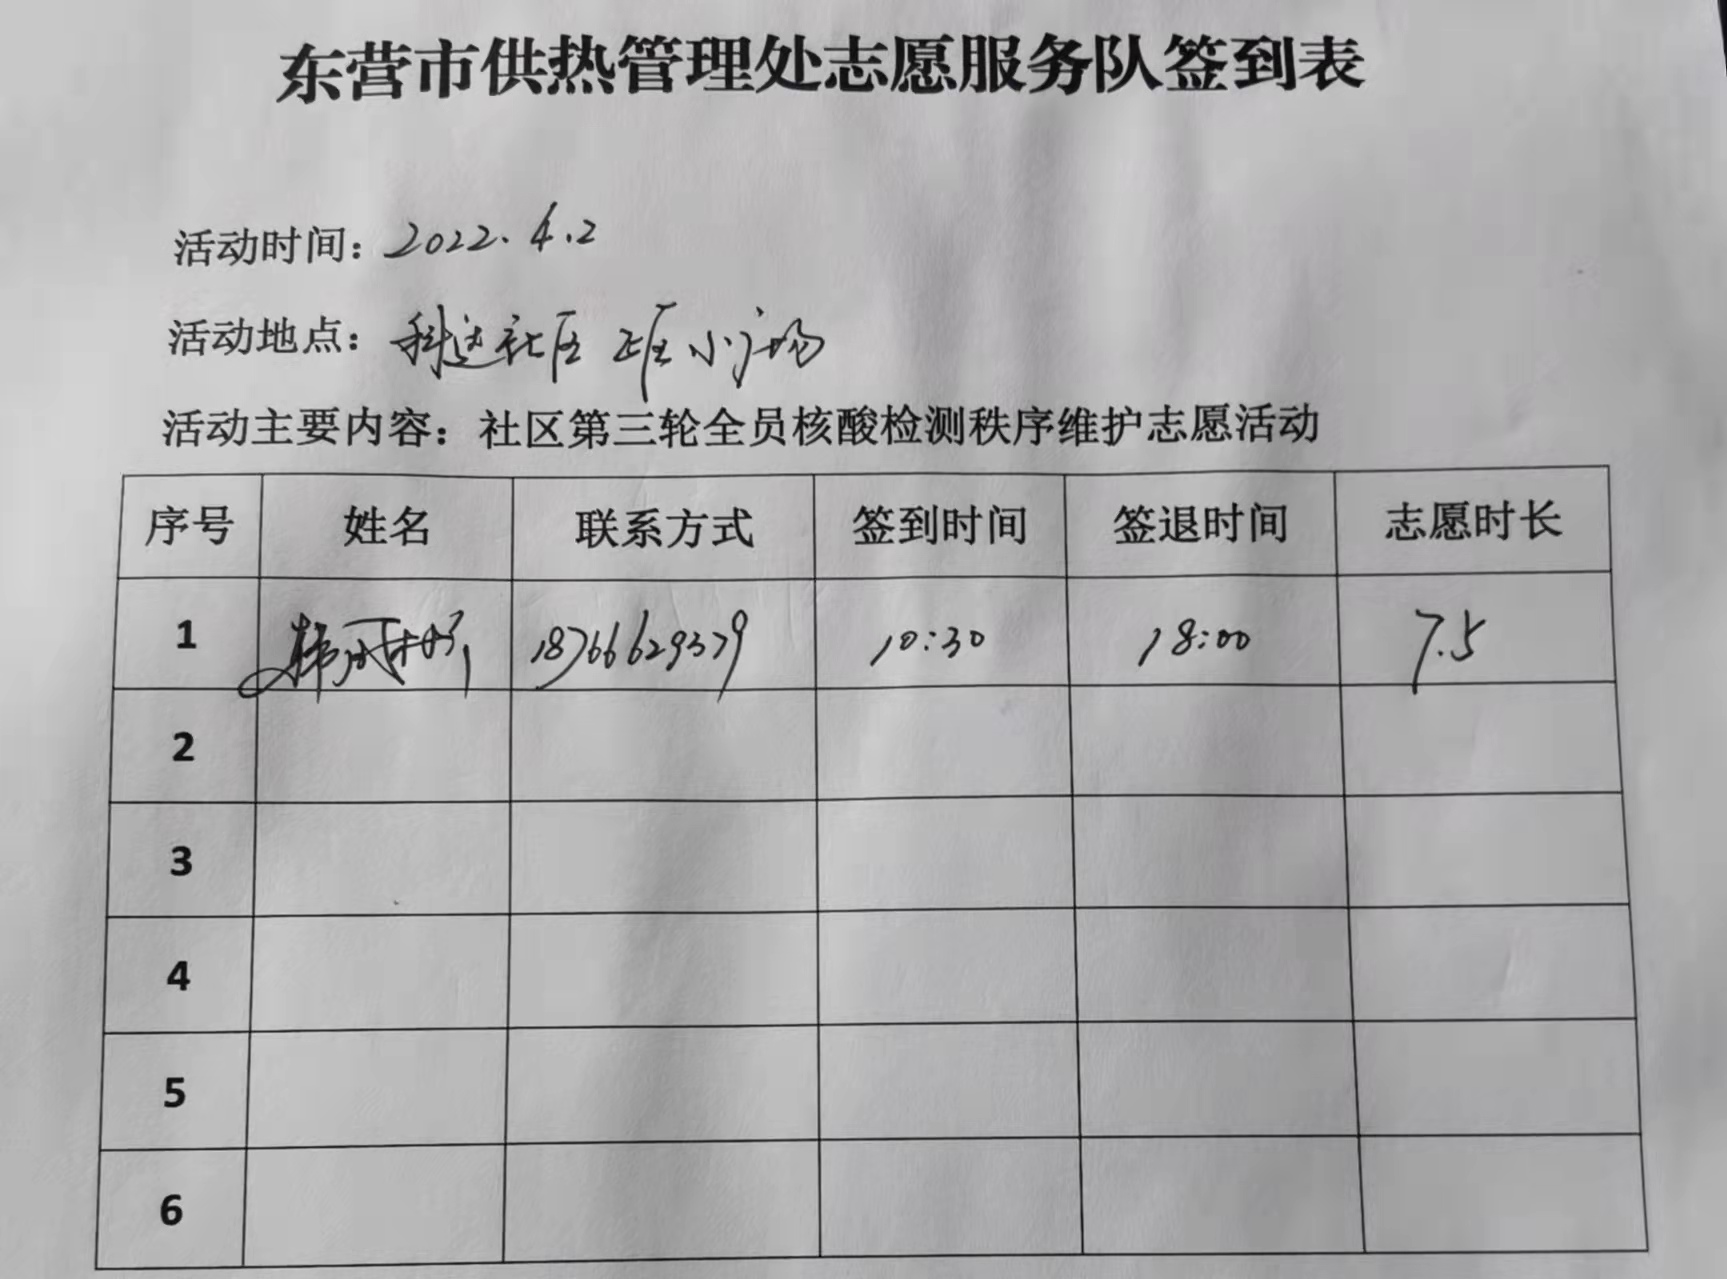 东营市供热管理处志愿服务队签到表
活动时间：2022.4.2
活动地点：科达社区 小广场
活动主要内容：社区第三轮全员核酸检测秩序维护志愿活动
序号 姓名 联系方式 签到时间 签退时间 志愿时长
1 18766629379 10:30 18:00 7.5
2
3
4
5
6